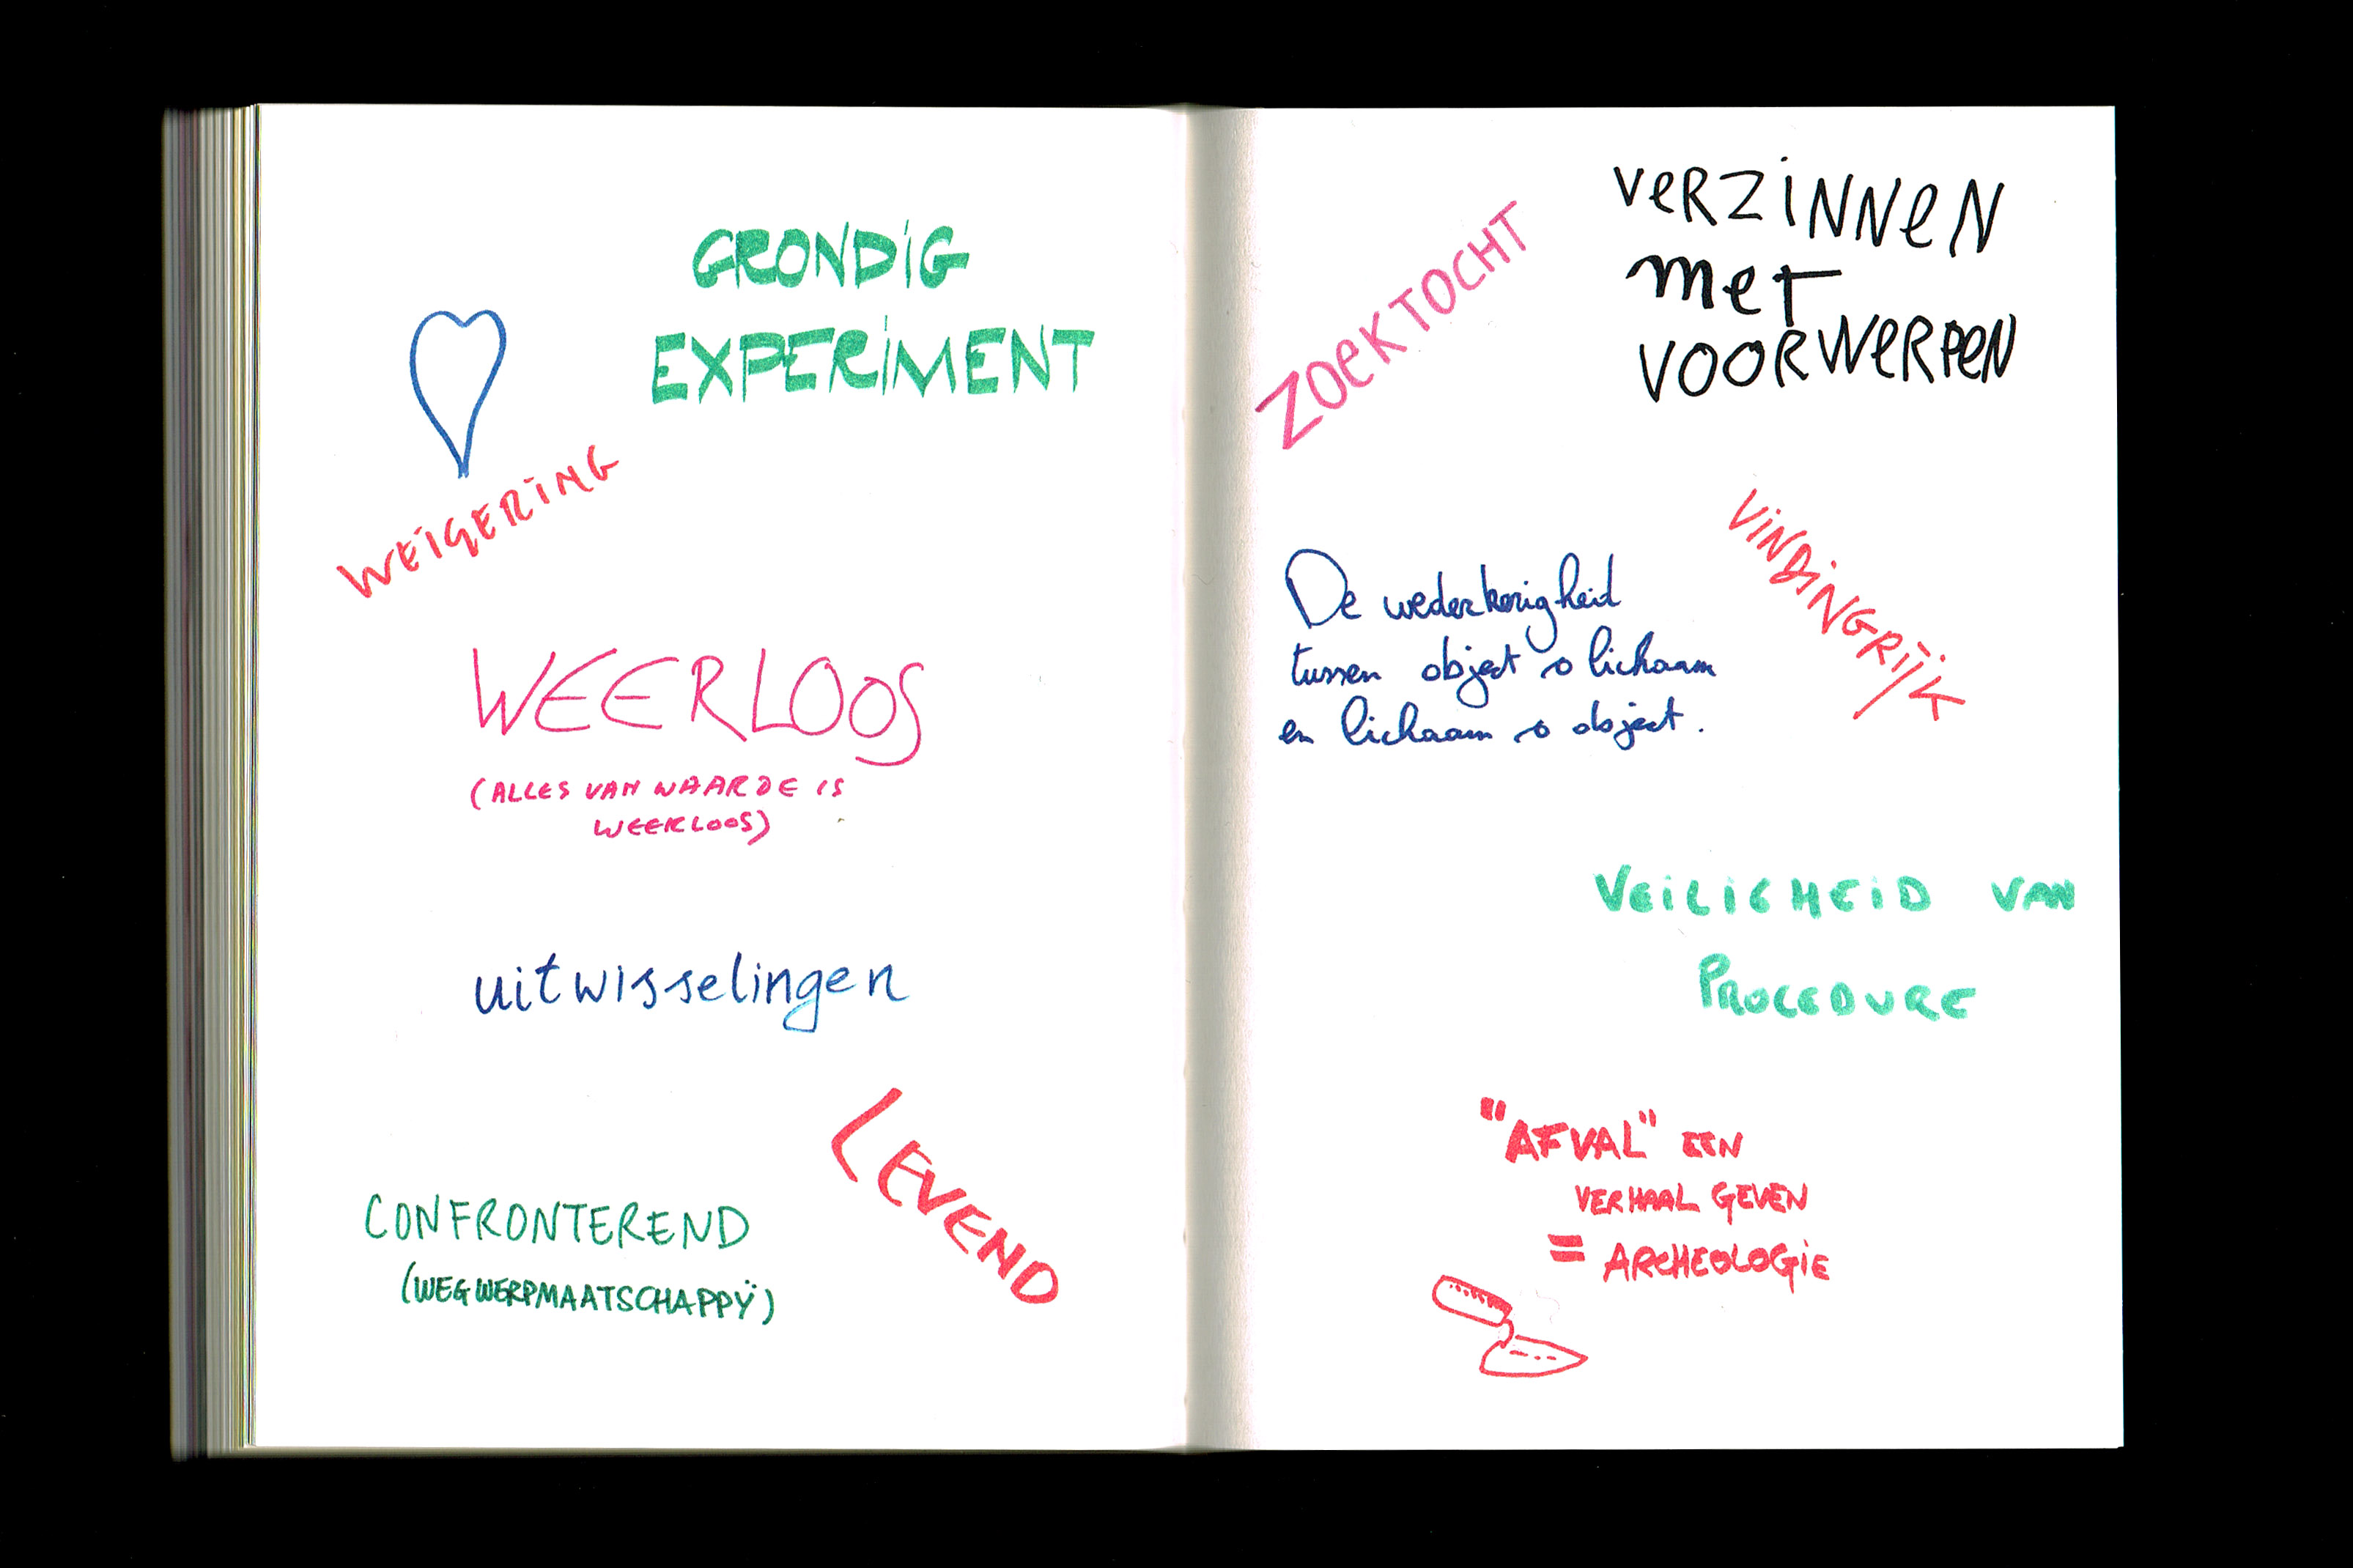 GRONDIG
EXPERIMENT
WEIGERING
WEERLOOS
(ALLES VAN WAARDE IS
WEERLOOS)
uitwisselingen
LEVEND
CONFRONTEREND
(WEGWERPMAATSCHAPPŸ)
ZOEKTOCHT
VERZINNEN
MET
VOORWERPEN
VINDINGRIJK
De wederkerigheid
tussen object → lichaam
en lichaam → object.
VEILIGHEID VAN
PROCEDURE
"AFVAL" EEN
VERHAAL GEVEN
= ARCHEOLOGIE